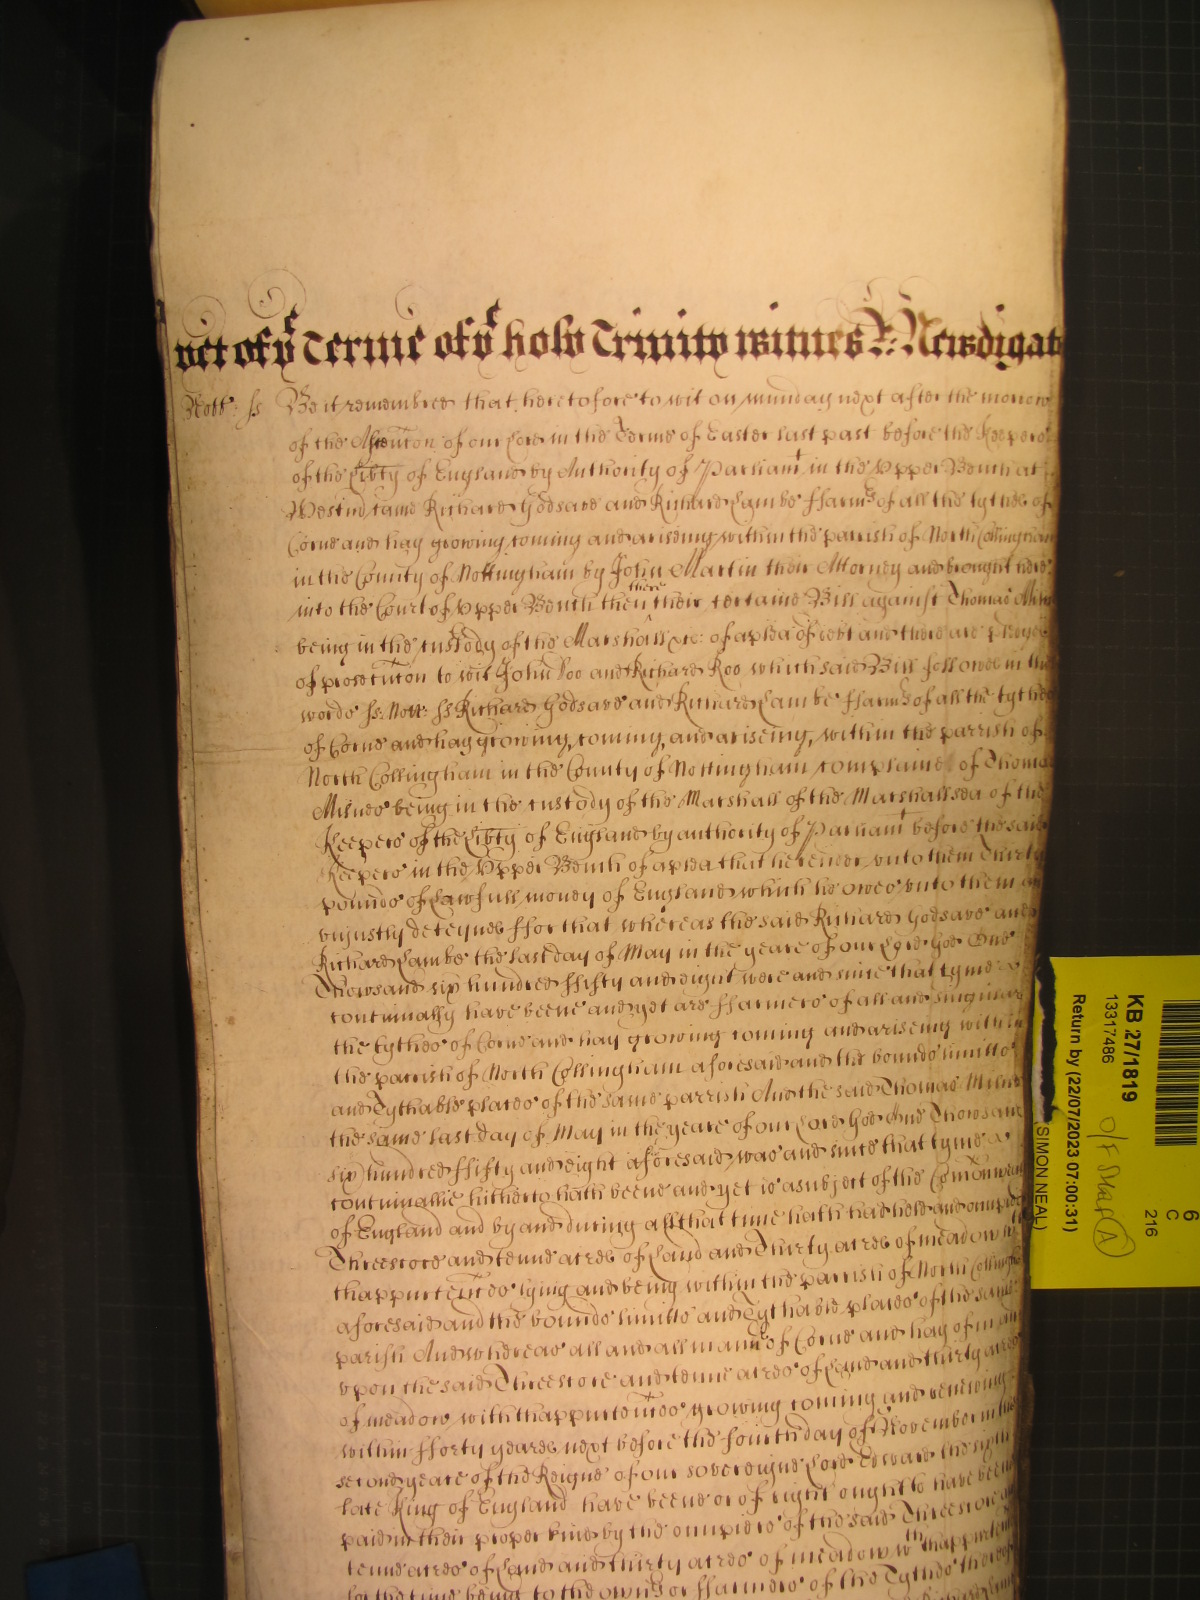 yet of ye Terme of ye holy Trinity witnes R: Newdigat
Nott: ss Be it remembred that heretofore to wit on munday next after the morrow
of the Assention of our Lord in the Terme of Easter last past before the Keepers
of the Libty of England by Authority of Parliamt in the Upper Bench at
Westm came Richard Godsave and Richard Lambe ffarms of all the tythes of
Corne and hay growing coming and ariseing within the parrish of North Collingham
in the County of Nottingham by John Martin their Attorney and brought here
into the Court of Upper Bench then there their certaine Bill against Thomas
being in the custody of the Marshall &c: of a plea of debt and there are pledges
of prosecution to wit John Doo and Richard Roo which said Bill followes in these
words ss: Nott: ss Richard Godsave and Richard Lambe ffarms of all the tythes
of Corne and hay growing, coming, and ariseing, within the parrish of
North Collingham in the County of Nottingham complaine of Thomas
Milnes being in the custody of the Marshall of the Marshallsea of the
Keepers of the Libty of England by authority of Parliamt before the said
Keepers in the Upper Bench of a plea that he render unto them Thirty
pounds of Lawfull money of England which he owes unto them and
unjustly deteynes ffor that whereas the said Richard Godsave and
Richard Lambe the last day of May in the yeare of our Lord God One
Thowsand six hundred ffifty and eight were and since that tyme
continually have beene and yet are ffarmers of all and singular
the tythes of Corne and hay growing coming and ariseing within
the parrish of North Collingham aforesaid and the bounds limitts
and Tythable places of the same parrish And the said Thomas Milnes
the same last day of May in the yeare of our Lord God One Thowsand
six hundred ffifty and eight aforesaid was and since that tyme
continuallie hitherto hath beene and yet is a subject of the Comonwealth
of England and by and during all that time hath had held and occupied
Threescore and tenne acres of Land and Thirty acres of meadow
thappurtences lying and being within the parrish of North Collingham
aforesaid and the bounds limitts and Tythable places of the same
parish And whereas all and all mannr of Corne and hay of in and
upon the said Threescore and tenne acres of Land and thirty acres
of meadow with thappurtences growing coming and renewing
within fforty yeares next before the fourth day of November in the
second yeare of the Reigne of our sovereigne Lord Edward the sixth
late King of England have beene or of right ought to have been
paid in their proper kind by the occupiers of the said Threescore and
tenne acres of Land and thirty acres of meadow wth thappurtences
for the time being to the owns or ffarmers of the Tythes thereof
KB 27/1819
13317486
Return by (22/07/2023 07:00:31)
SIMON NEAL)
O/F Shelf A
6
C
216